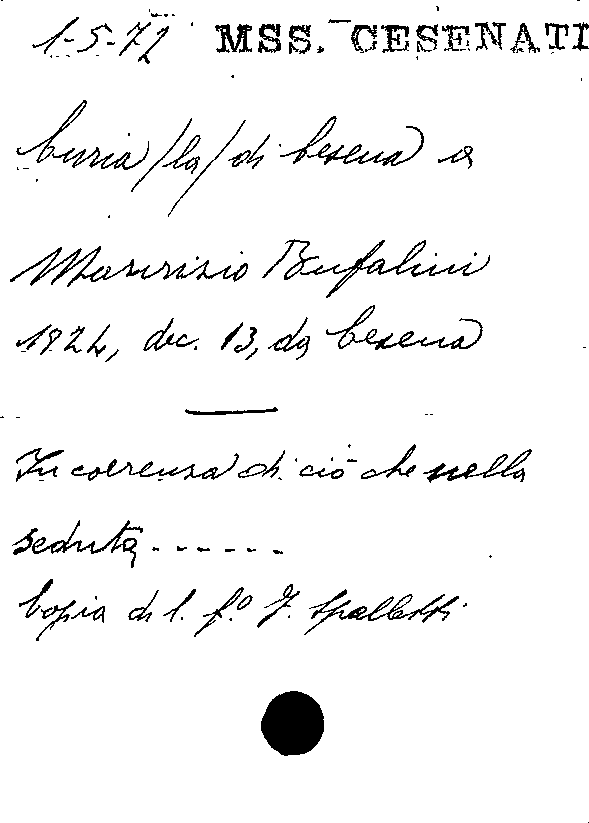 1-5-72 MSS. CESENATI
Curia /la/ di Cesena a
Maurizio Bufalini
1824, dec. 13, da Cesena
In coerenza di ciò che nella
seduta......
Copia di l. f.º J. Spalletti